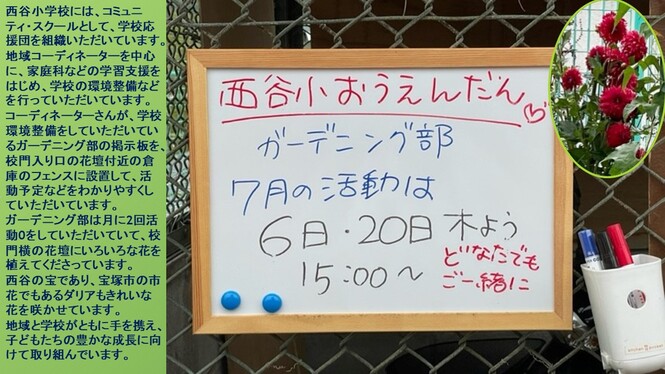 西谷小学校には、コミュニ
ティ・スクールとして、学校応
援団を組織いただいています。
地域コーディネーターを中心
に、家庭科などの学習支援を
はじめ、学校の環境整備など
を行っていただいています。
コーディネーターさんが、学校
環境整備をしていただいてい
るガーデニング部の掲示板を、
校門入り口の花壇付近の倉
庫のフェンスに設置して、活
動予定などをわかりやすくし
ていただいています。
ガーデニング部は月に2回活
動0をしていただいていて、校
門横の花壇にいろいろな花を
植えてくださっています。
西谷の宝であり、宝塚市の市
花でもあるダリアもきれいな
花を咲かせています。
地域と学校がともに手を携え、
子どもたちの豊かな成長に向
けて取り組んでいます。
西谷小おうえんだん♡
ガーデニング部
7月の活動は
6日・20日 木よう
15:00〜
どなたでも
ご一緒に